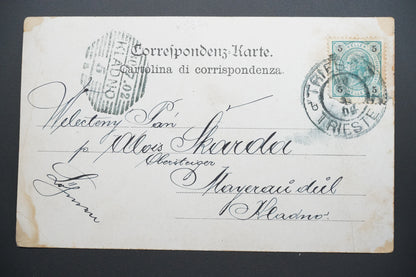 Correspondenz-Karte.
Cartolina di corrispondenza.
KLADNO
5
5
5
5
TRIESTE
Velectený Pán
p Alois Skarda
Obersteiger
Mayerau důl
Kladno